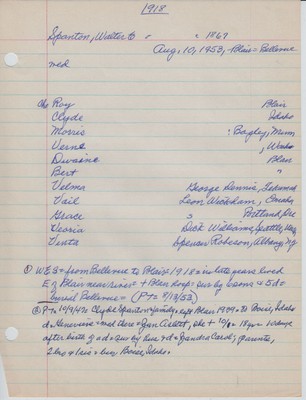 1918
Spanton, Walter E " " 1869
Aug. 10, 1953, Blair = Bellevue
md
Ch Roy Blair
Clyde Idaho
Morris : Bagley, Minn
Verne , Wash
Dwaine Blair
Bert "
Velma George Dennis,
Vail Leon Wickham, Omaha
Grace s Portland, Ore
Veoria Dick Williams, Seattle, Wn
Venta Spencer Robeson, Albany, NY
① W.E.S = from Bellevue to Blair = 1918 = in late years lived
E of Blair near river = + Blair hosp = sur by sons + 5 d =
burial Bellevue = (P-T 8/13/53)
② P-T 10/9/42 Clyde Spanton + family = left Blair 1939 = to Boise, Idaho
d = Genevieve = md there = , she + 10/2 = 18 yr = 10 days
after birth of a d = sur by hus + d = Sandra Carol; parents,
2 bro + 1 sis = bur Boise, Idaho.